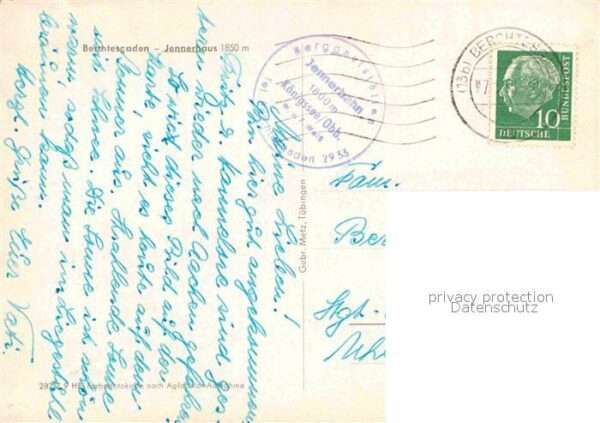 Berchtesgaden – Jennerhaus 1850 m
Berggaststätte
Jennerbahn
1800 m
Königssee/Obb.
Tel. Berchtesgaden 2953
(13b) BERCHTES
DEUTSCHE
BUNDESPOST
10
Meine Lieben!
Bin hier gut angekommen,
Fritz u. Hannelore sind ges-
tern wieder nach Aachen gefahren.
So wie dieses Bild auf der
Karte sieht es heute auf dem
Jenner aus. Strahlende Sonne
und Schnee. Die Sonne ist schön
warm, sodaß man im Liegestuhl
kann.
Herzl. Grüße Euer Vati.
Fam.
Ber
Stgt-
Gebr. Metz, Tübingen
Farbphotokarte nach Agfacolor-Aufnahme
privacy protection
Datenschutz